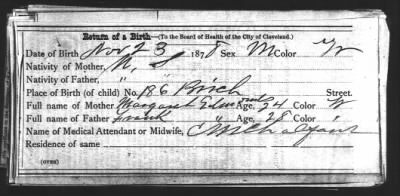 Return of a Birth—(To the Board of Health of the City of Cleveland.)
Date of Birth, Nov 23 1878 Sex M Color W
Nativity of Mother, U. S
Nativity of Father, " "
Place of Birth (of child) No. 186 Birch Street.
Full name of Mother Margaret Age, 24 Color W
Full name of Father Frank Age, 28 Color "
Name of Medical Attendant or Midwife,
Residence of same
(OVER)